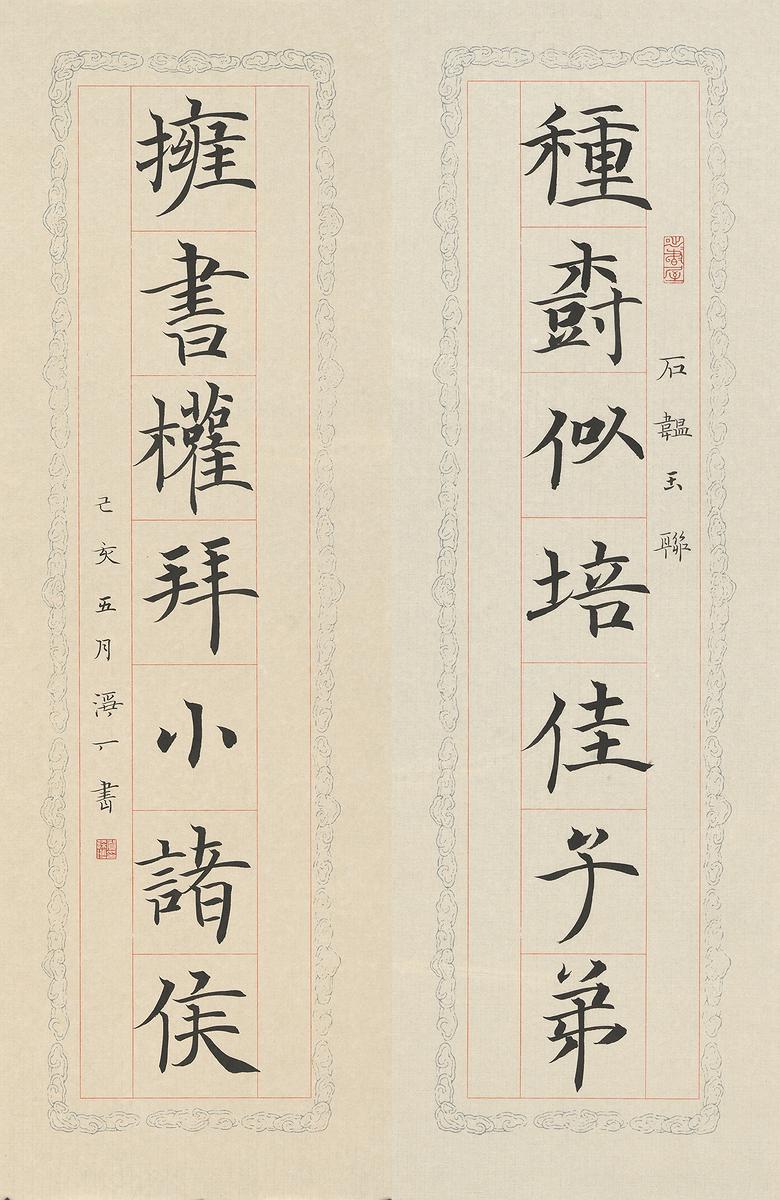 石韞玉聯
種樹似培佳子弟
擁書權拜小諸侯
己亥五月
書